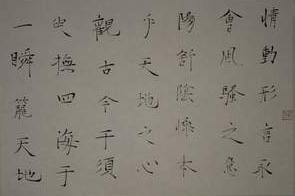 情動形言取
會風騷之意
陽舒陰慘本
乎天地之心
觀古今于須
臾撫四海于
一瞬籠天地